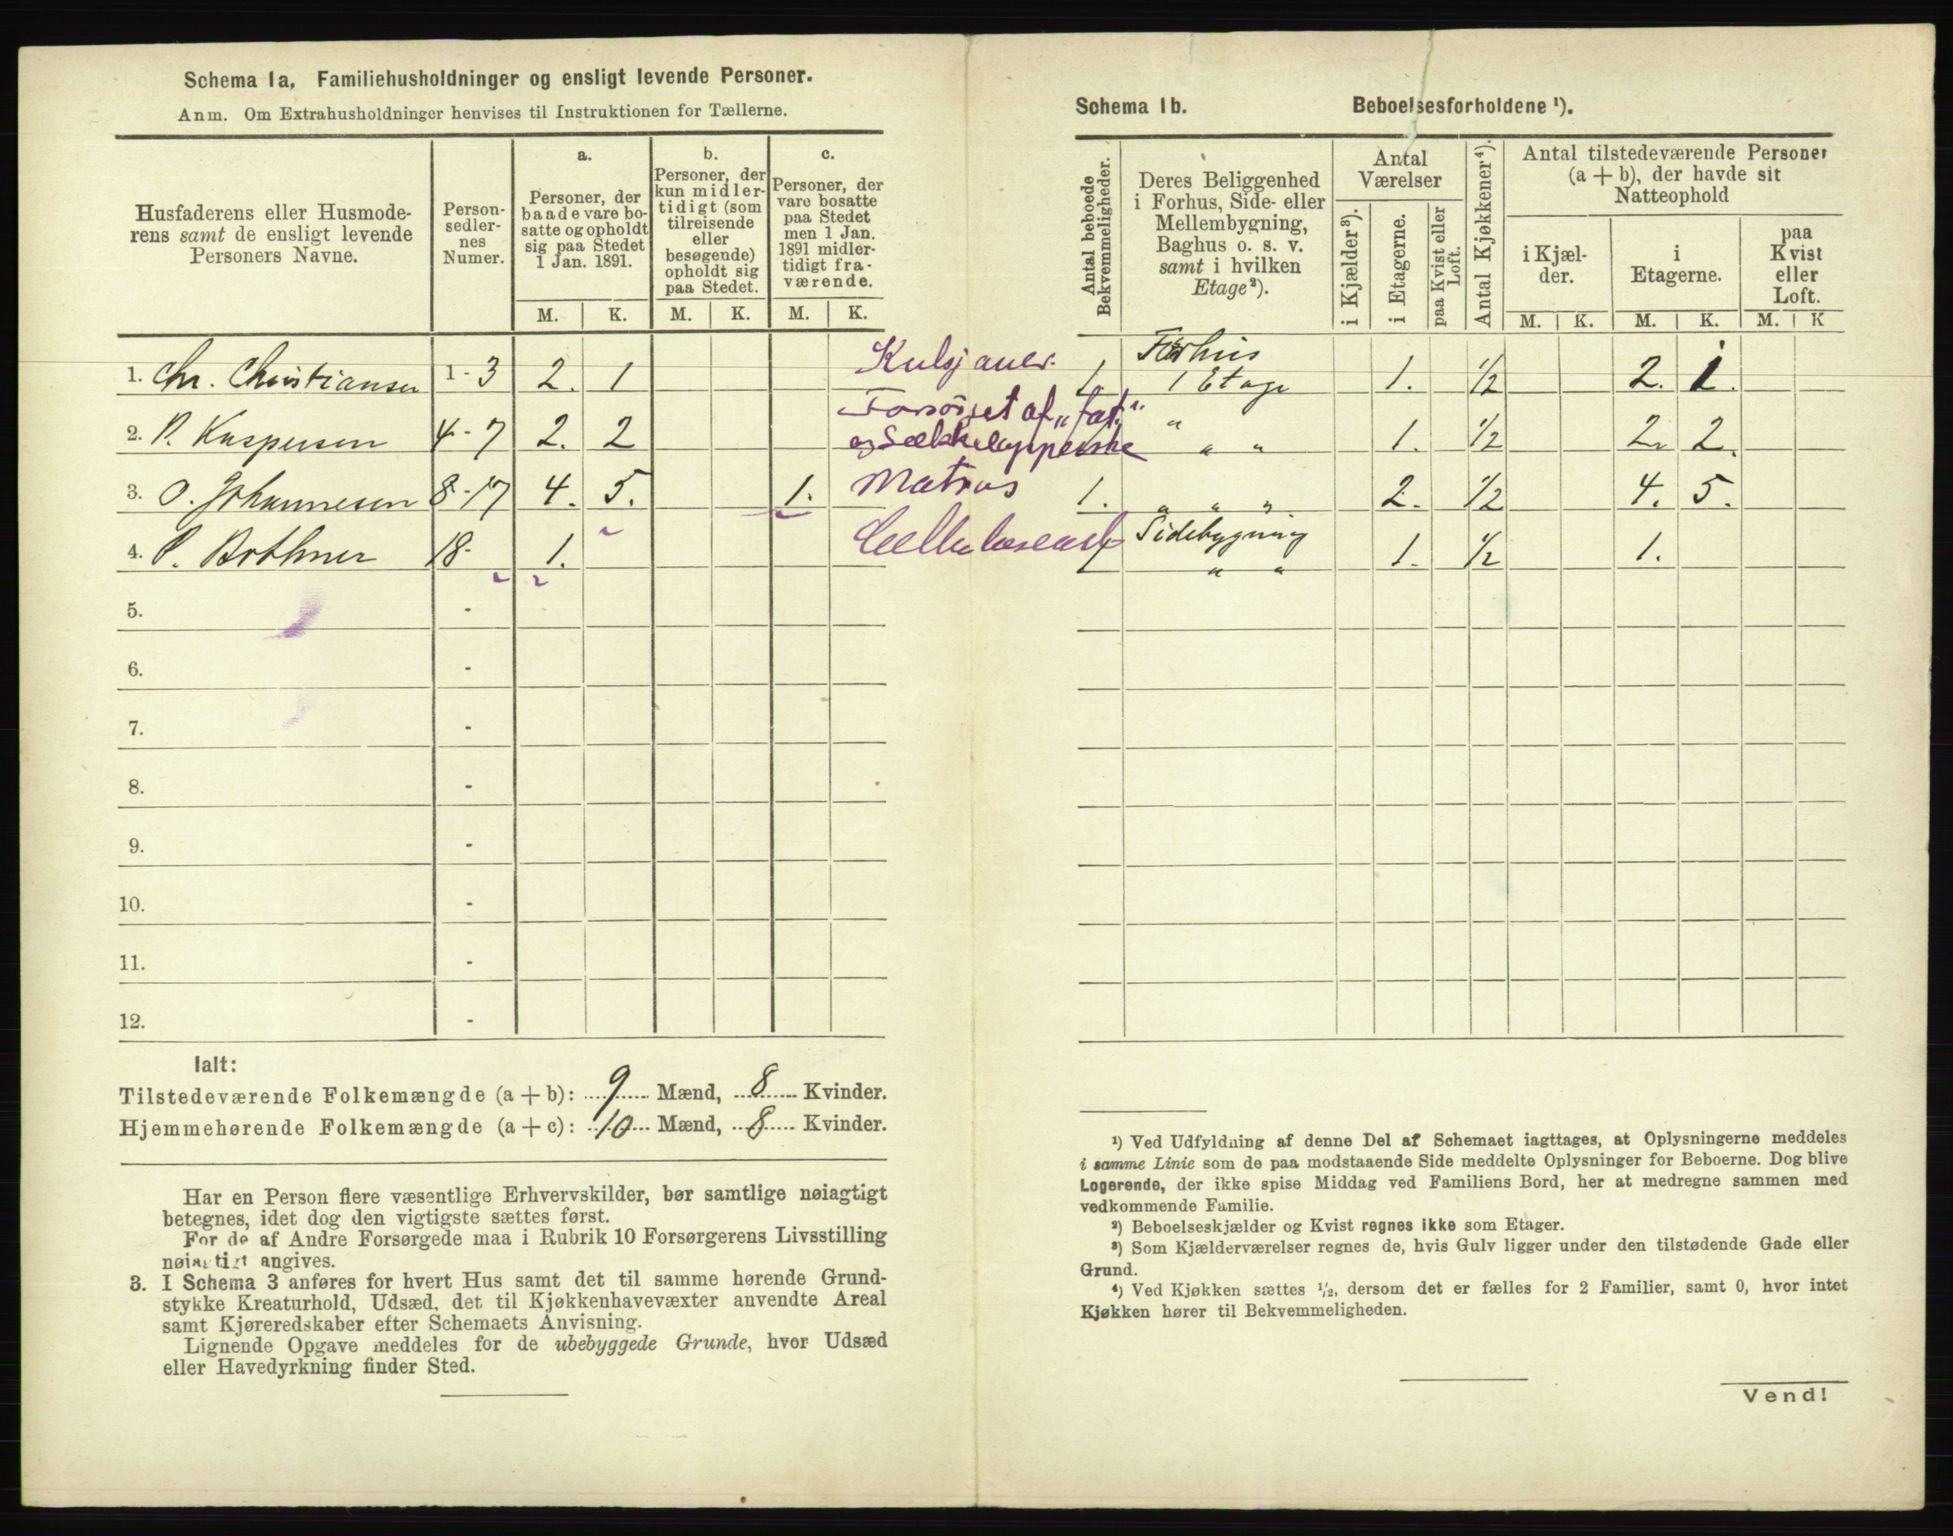 Schema 1a, Familiehusholdninger og ensligt levende Personer.
Anm. Om Extrahusholdninger henvises til Instruktionen for Tællerne.
Husfaderens eller Husmode-
rens samt de ensligt levende
Personers Navne.
Person-
sedler-
nes
Numer.
a.
Personer, der
baade vare bo-
satte og opholdt
sig paa Stedet
1 Jan. 1891.
b.
Personer, der
kun midler-
tidigt (som
tilreisende
eller
besøgende)
opholdt sig
paa Stedet.
c.
Personer, der
vare bosatte
paa Stedet
men 1 Jan.
1891 midler-
tidigt fra-
værende.
M. K. M. K. M. K.
1. Chr. Christiansen 1-3 2. 1 Kulsjauer.
2. P. Kaspersen 4-7 2. 2 Forsörget af "fat."
og
3. O. Johannesen 8-17 4. 5. 1. Matros
4. P. Bothner 18- 1.
5. -
6. -
7. -
8. -
9. -
10. -
11. -
12. -
Ialt:
Tilstedeværende Folkemængde (a + b): 9 Mænd, 8 Kvinder.
Hjemmehørende Folkemængde (a + c): 10 Mænd, 8 Kvinder.
Har en Person flere væsentlige Erhvervskilder, bør samtlige nøiagtigt
betegnes, idet dog den vigtigste sættes først.
For de af Andre Forsørgede maa i Rubrik 10 Forsørgerens Livsstilling
nøiagtigt angives.
3. I Schema 3 anføres for hvert Hus samt det til samme hørende Grund-
stykke Kreaturhold, Udsæd, det til Kjøkkenhavevæxter anvendte Areal
samt Kjøreredskaber efter Schemaets Anvisning.
Lignende Opgave meddeles for de ubebyggede Grunde, hvor Udsæd
eller Havedyrkning finder Sted.
Schema 1b. Beboelsesforholdene ¹).
Antal beboede
Bekvemmeligheder.
Deres Beliggenhed
i Forhus, Side- eller
Mellembygning,
Baghus o. s. v.
samt i hvilken
Etage²).
Antal
Værelser
i Kjælder³).
i Etagerne.
paa Kvist eller
Loft.
Antal Kjøkkener⁴).
Antal tilstedeværende Personer
(a + b), der havde sit
Natteophold
i Kjæl-
der.
i
Etagerne.
paa
Kvist
eller
Loft.
M. K. M. K. M. K
Forhus
1 1 Etage 1. 1/2 2. 1.
" " " 1. 1/2 2. 2.
1. " " " 2. 1/2 4. 5.
Sidebygning
1 " " 1. 1/2 1.
¹) Ved Udfyldning af denne Del af Schemaet iagttages, at Oplysningerne meddeles
i samme Linie som de paa modstaaende Side meddelte Oplysninger for Beboerne. Dog blive
Logerende, der ikke spise Middag ved Familiens Bord, her at medregne sammen med
vedkommende Familie.
²) Beboelseskjælder og Kvist regnes ikke som Etager.
³) Som Kjælderværelser regnes de, hvis Gulv ligger under den tilstødende Gade eller
Grund.
⁴) Ved Kjøkken sættes 1/2, dersom det er fælles for 2 Familier, samt 0, hvor intet
Kjøkken hører til Bekvemmeligheden.
Vend!